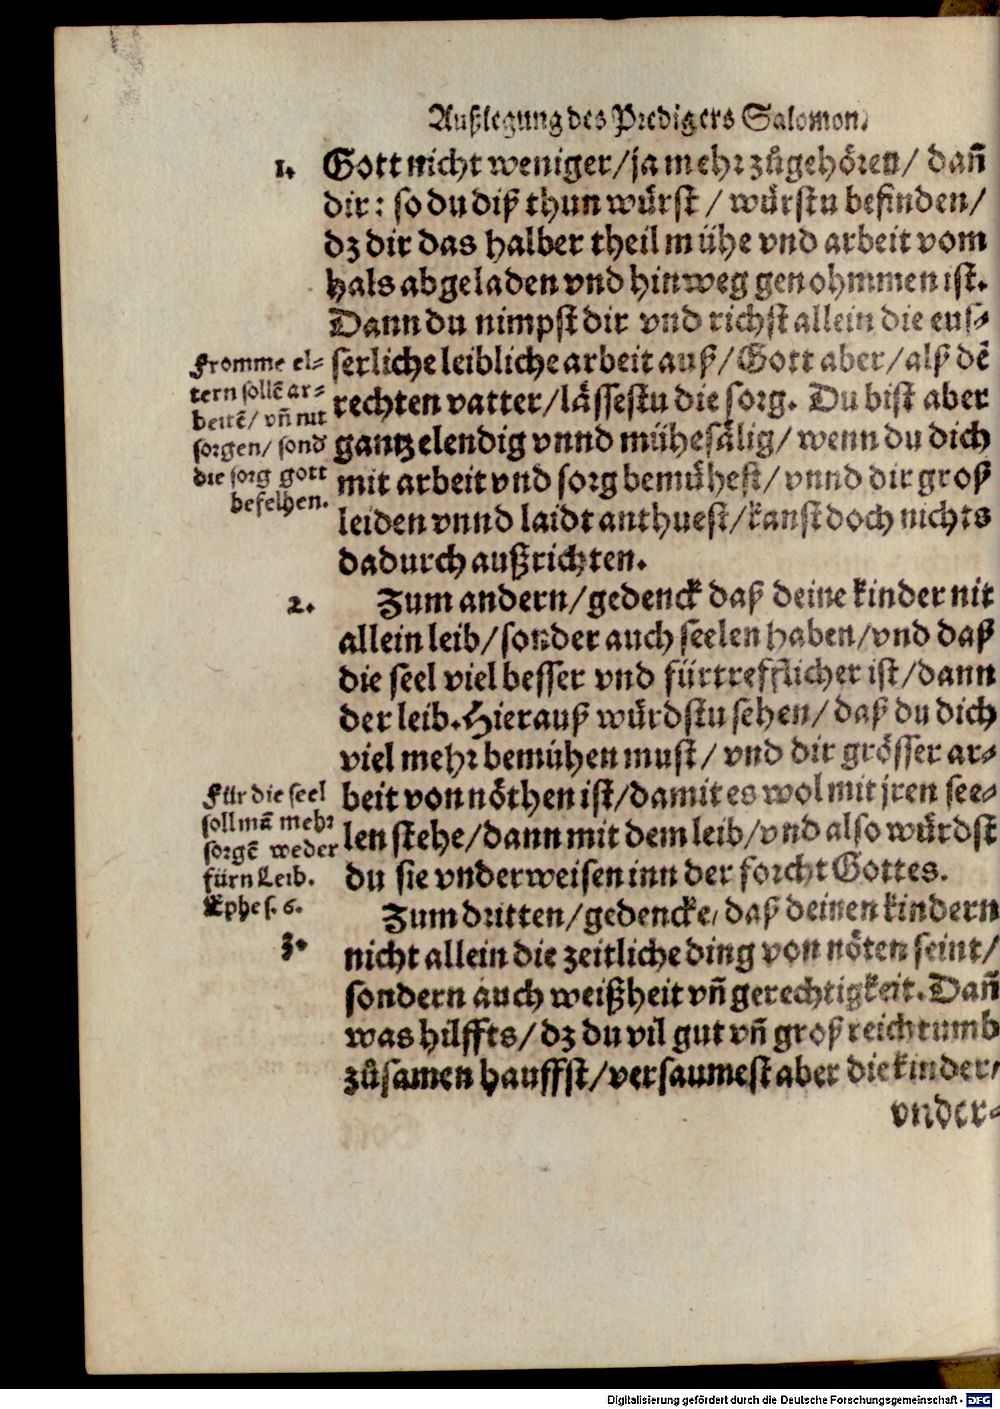 Außlegung des Predigers Salomon.
1. Gott nicht weniger/ ja mehr zůgehören/ dañ
dir: so du diß thun würst / würstu befinden/
dz dir das halber theil mühe vnd arbeit vom
hals abgeladen vnd hinweg genohmmen ist.
Dann du nimpst dir vnd richst allein die eus-
serliche leibliche arbeit auß/ Gott aber/ alß dē
rechten vatter/ lässestu die sorg. Du bist aber
gantz elendig vnnd mühesälig/ wenn du dich
mit arbeit vnd sorg bemühest/ vnnd dir groß
leiden vnnd laidt anthuest/ kanst doch nichts
dadurch außrichten.
Fromme el-
tern sollē ar-
beitē/ vñ nit
sorgen/ sond
die sorg gott
befelhen.
2. Zum andern/ gedenck daß deine kinder nit
allein leib/ sonder auch seelen haben/ vnd daß
die seel viel besser vnd fürtrefflicher ist/ dann
der leib. Hierauß würdstu sehen/ daß du dich
viel mehr bemühen must/ vnd dir grösser ar-
beit von nöthen ist/ damit es wol mit jren see-
len stehe/ dann mit dem leib/ vnd also würdst
du sie vnderweisen inn der forcht Gottes.
Für die seel
soll mā mehr
sorgē weder
fürn Leib.
Ephes. 6.
3. Zum dritten/ gedencke/ daß deinen kindern
nicht allein die zeitliche ding von nöten seint/
sondern auch weißheit vñ gerechtigkeit. Dañ
was hilffts/ dz du vil gut vñ groß reichtumb
zůsamen hauffst/ versaumest aber die kinder/
vnder-
Digitalisierung gefördert durch die Deutsche Forschungsgemeinschaft - DFG